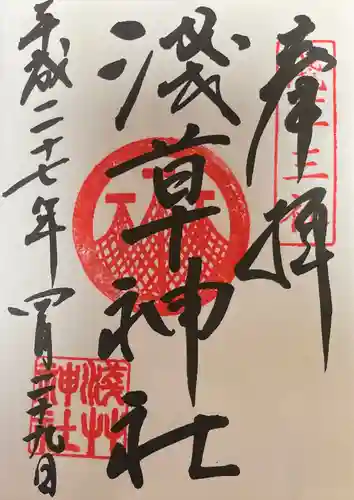 奉拝
淺草神社
平成二十七年四月二十九日
淺草神社